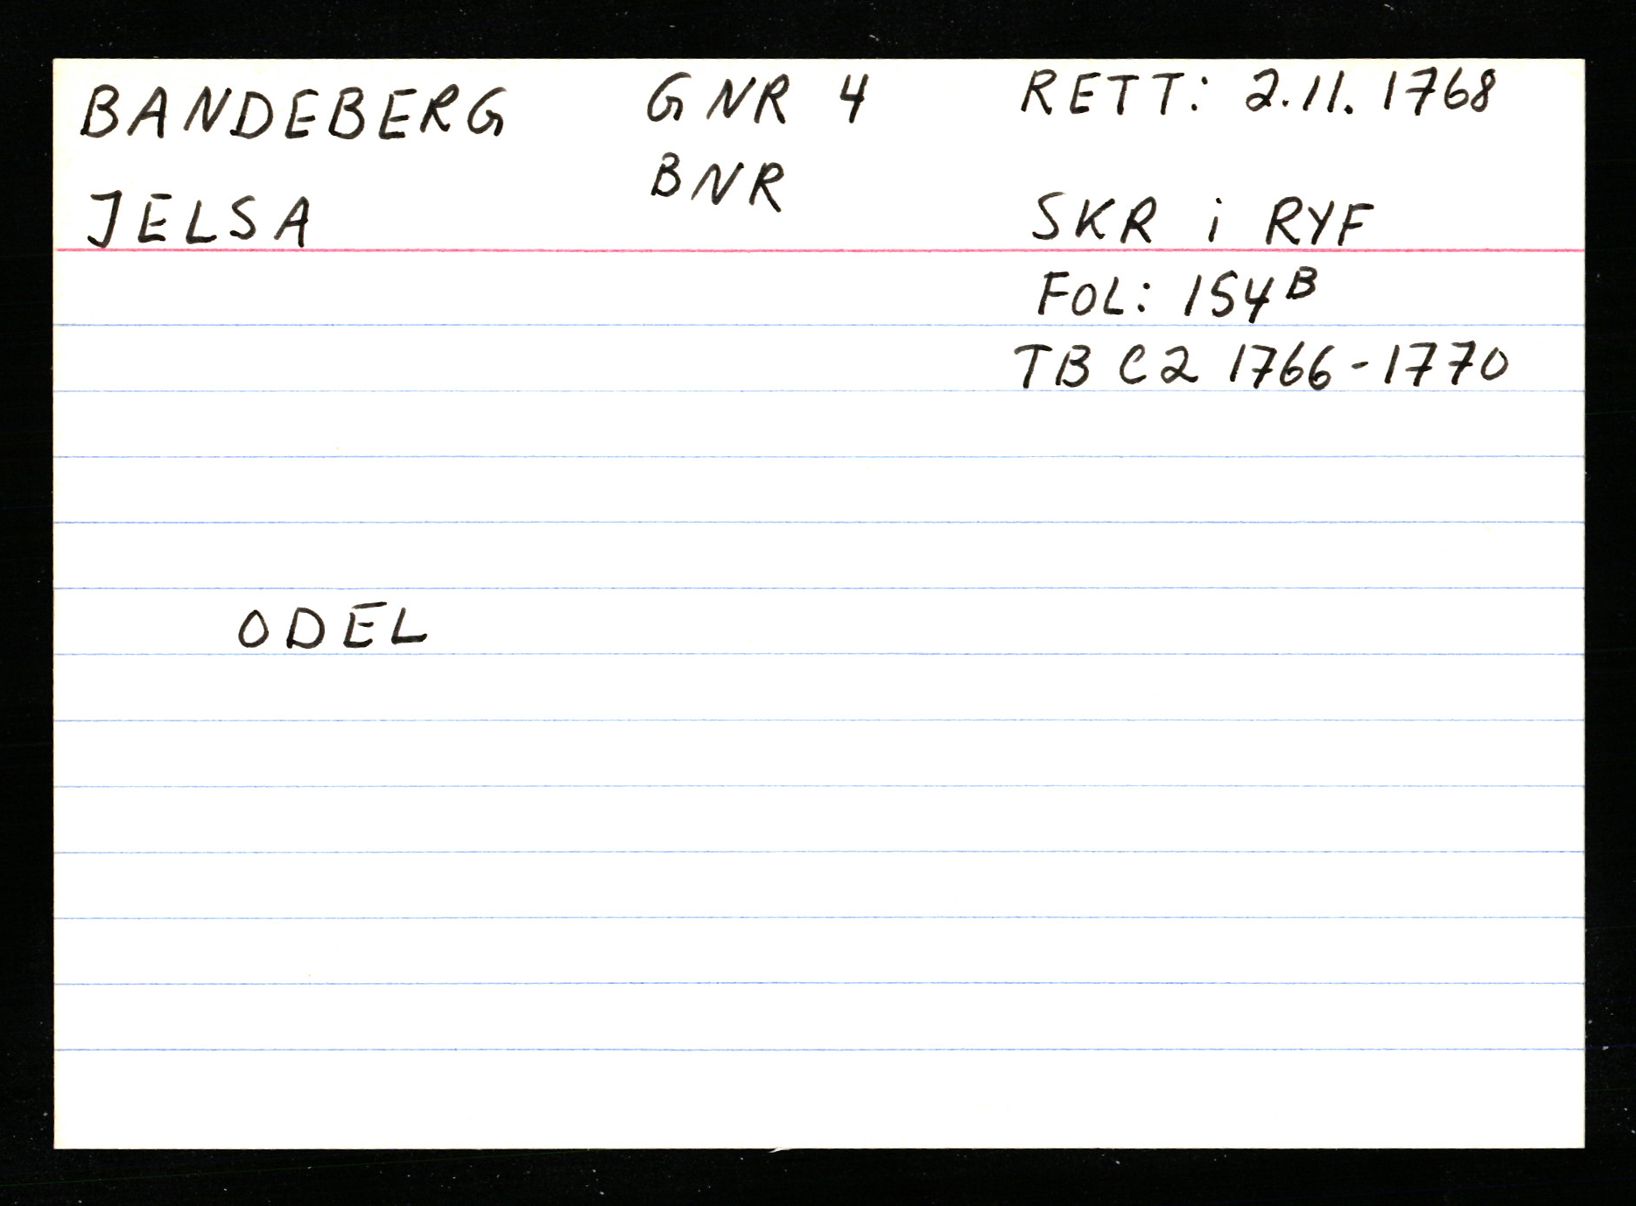 BANDEBERG GNR 4 RETT: 2.11.1768
BNR
JELSA SKR i RYF
FOL: 154B
TB C2 1766-1770
ODEL